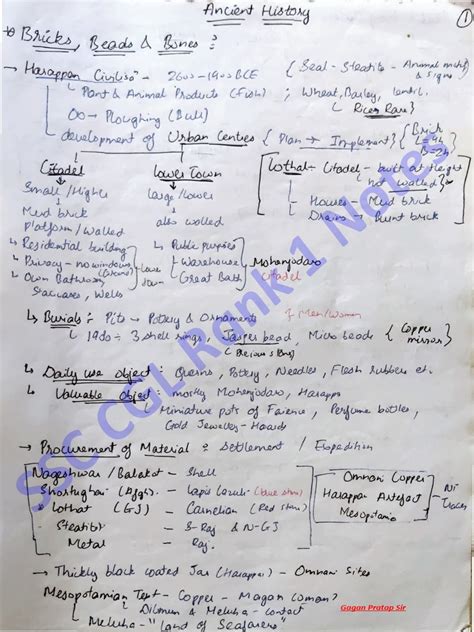 Ancient History
1
Bricks, Beads & Bones :
→ Harappan Civilisn - 2600-1900 BCE { Seal - Steatite - Animal motif & Signs
↳ Plant & Animal Products (Fish) ; Wheat, Barley, lentil. (Rice Rare)
Oo → Ploughing (Bull)
development of Urban Centres { Plan → Implement } { Brick L=4h B=2h
Citadel
Lower Town
Small / Higher
large / lower
Mud brick platform / Walled
also walled
Lothal - Citadel - built at height not walled
→ Houses - Mud brick
→ Drains → burnt brick
↳ Residential building
↳ Privacy - no windows (Ground)
↳ Own Bathroom, Staircases, Wells
Lower town
↳ Public purposes
↳ Warehouse
↳ Great Bath
Mohenjodaro
Citadel
↳ Burials : Pits → Pottery & Ornaments { Men/Women
↳ 1980 → 3 shell rings, Jasper bead, Micro beads (Copper mirror)
(Precious stone)
↳ Daily use object : Querns, Pottery, Needles, Flesh rubbers etc.
↳ Valuable object : mostly Mohenjodaro, Harappa
Miniature pots of Faience, Perfume bottles,
Gold Jewellery - Hoards
→ Procurement of Material = Settlement / Expedition
Nageshwar / Balakot - Shell
Shortughai (Afgn.) - Lapis Lazuli (blue stone)
Lothal (GJ) - Carnelian (Red stone)
Steatite - S-Raj & N-GJ
Metal - Raj.
Omman Copper
Harappan Artefact
Mesopotamia
Ni Traces
→ Thickly black coated Jar (Harappa) - Omman Sites
Mesopotamian Text - Copper - Magan (Oman)
↳ Dilmun & Meluha - contact
Meluha - "Land of Seafarers"
SSC CGL Rank 1 Notes
Gagan Pratap Sir